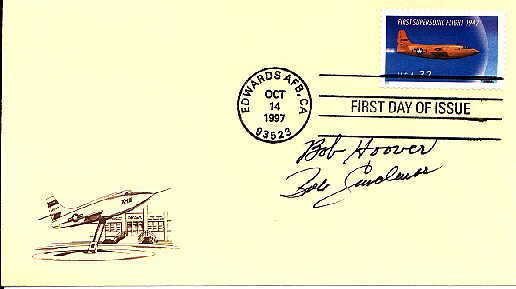 FIRST SUPERSONIC FLIGHT 1947
USA 32
EDWARDS AFB, CA
OCT
14
1997
93523
FIRST DAY OF ISSUE
Bob Hoover
Bob